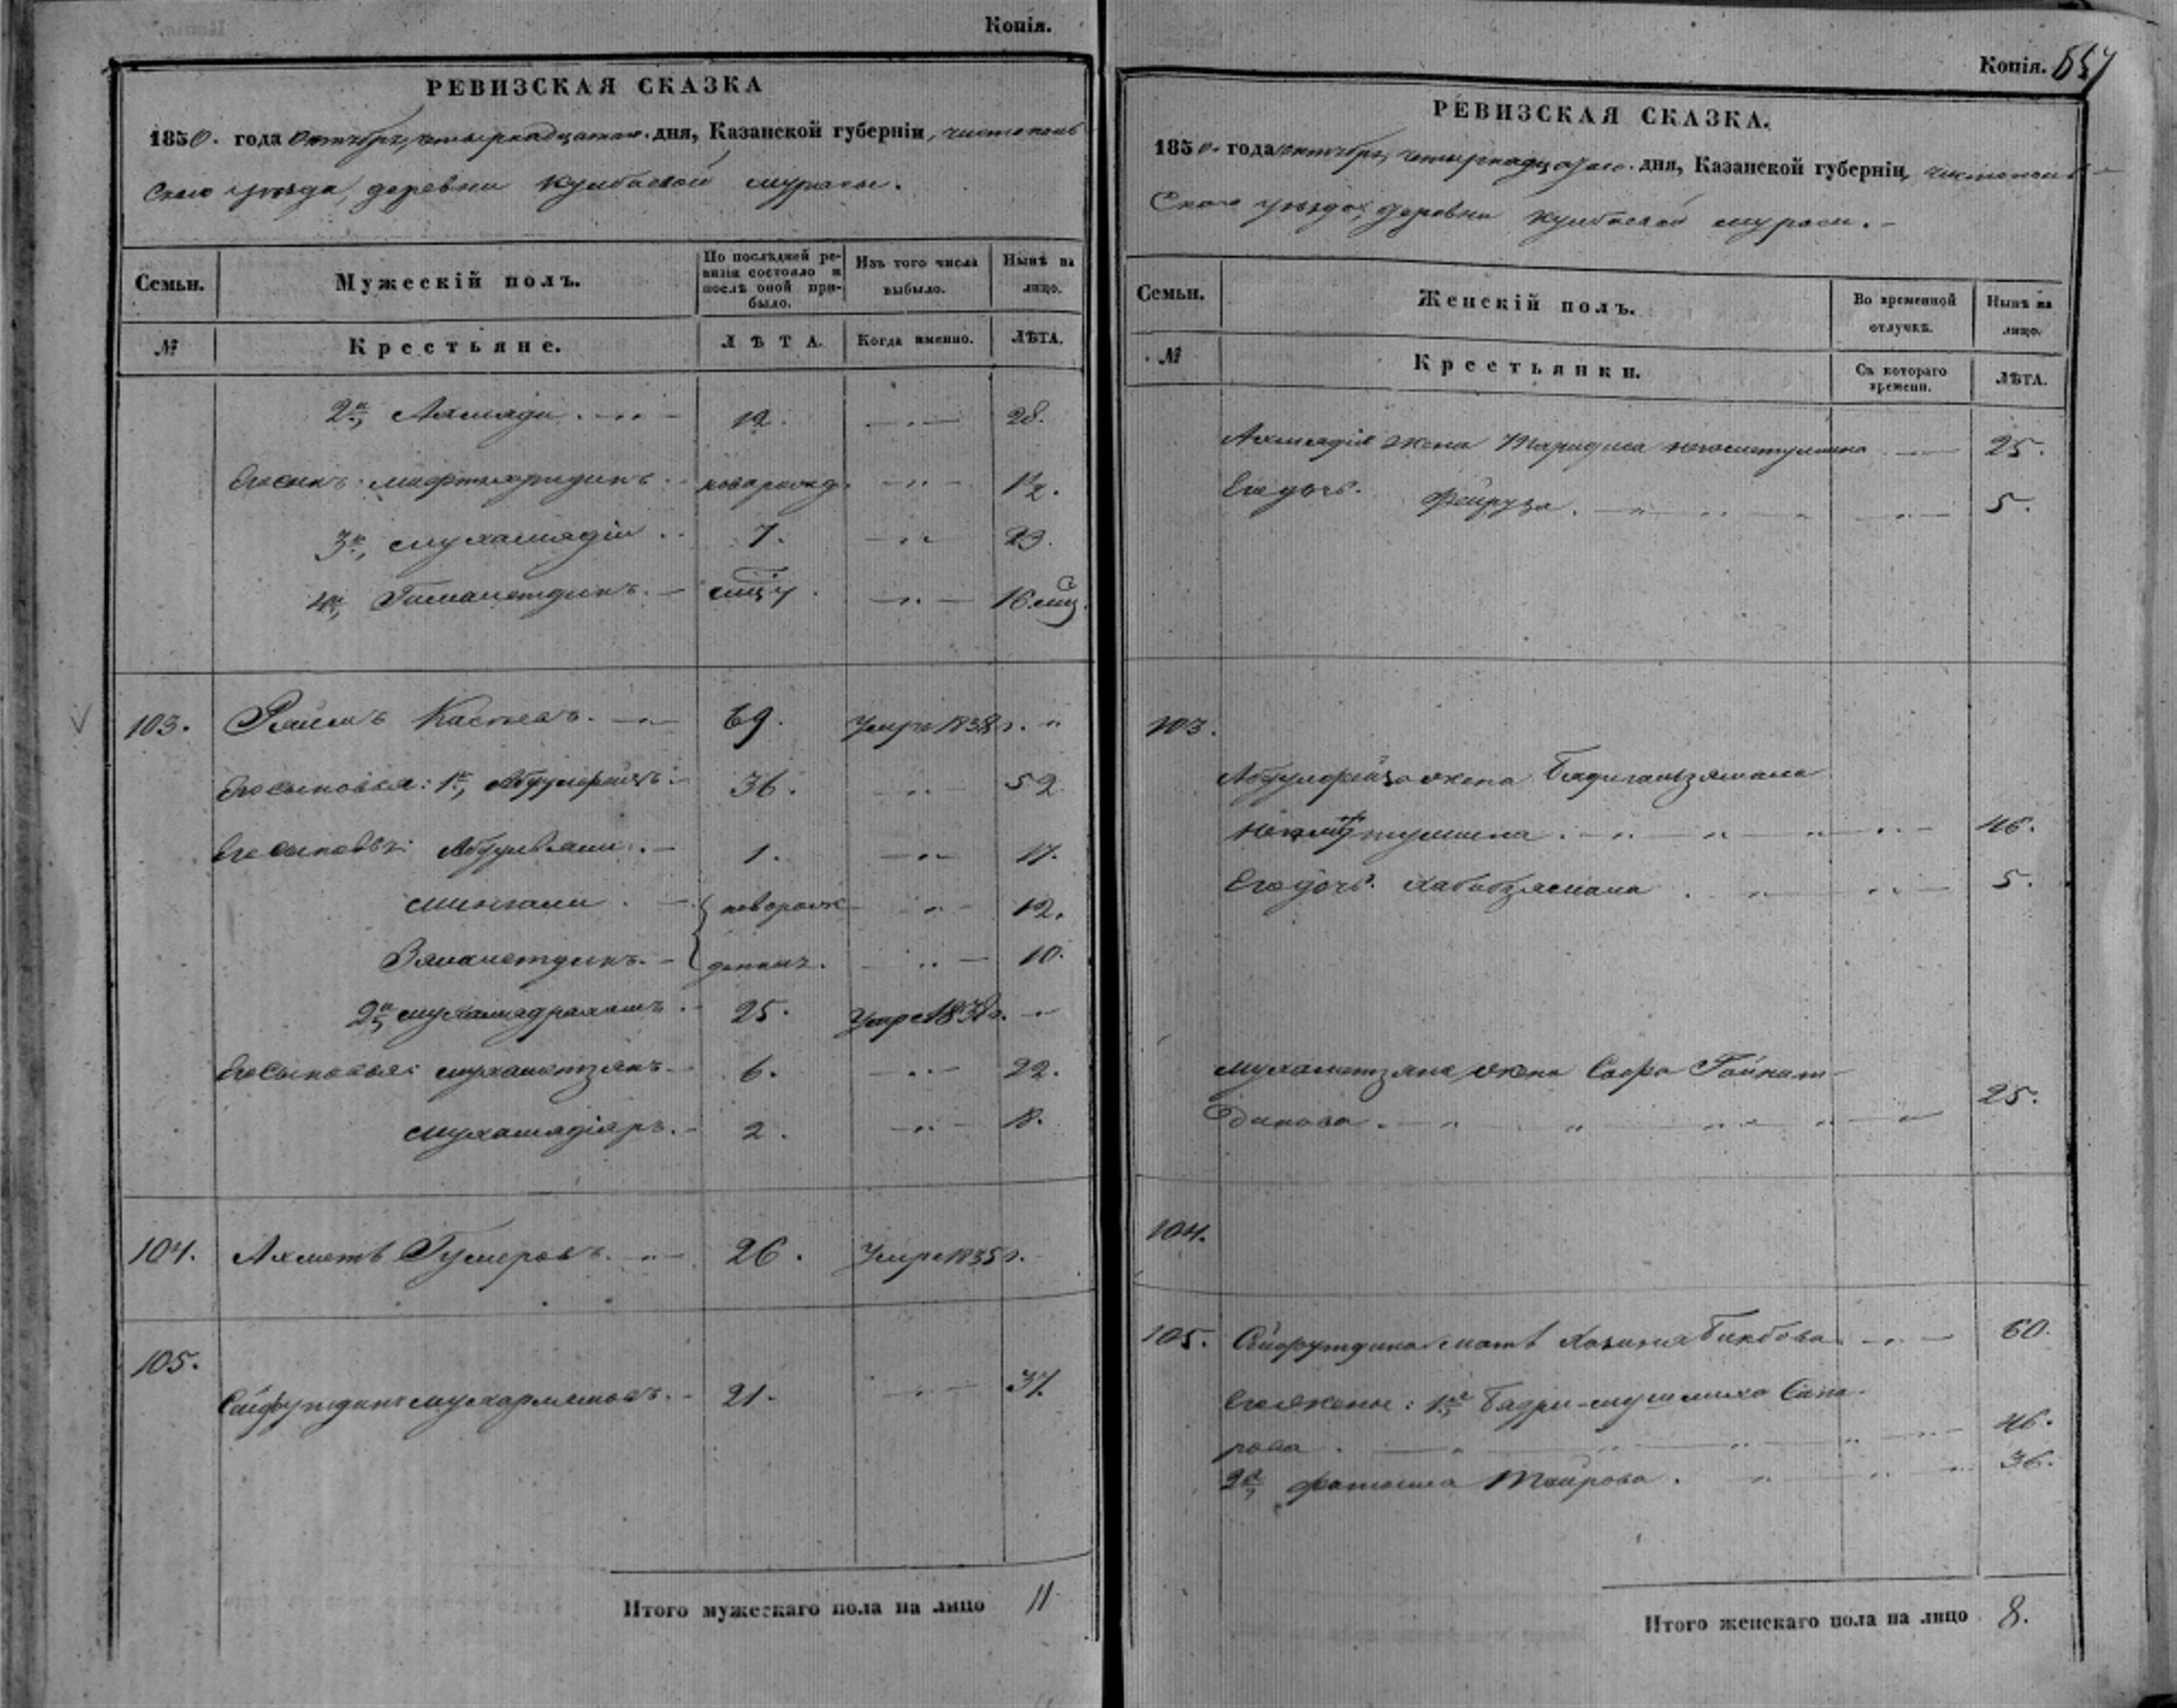 Копія.
РЕВИЗСКАЯ СКАЗКА
1850. года октября четырнадцатаго дня, Казанской губерніи, чистополь
скаго уѣзда, деревни Кулбаевой мурасы.
Семьи. Мужескій полъ. По послѣдней ревизіи состояло и послѣ оной прибыло. Изъ того числа выбыло. Нынѣ на лицо.
№ Крестьяне. ЛѢТА. Когда именно. ЛѢТА.
2й, Ахмади 12. 28.
Его сынъ новорожд. 12.
3й, мухамядіи 7. 23.
4й, 16 мц.
103. Рахимъ 69. Умре 1838 г.
Его сыновья: 1й, Абдулфаизъ 36. 52
Его сыновья: Абдулвали 1. 17.
мингали новорож 12.
Зямалетдинъ денные. 10.
2й, мухамядрахимъ 25. Умре 1838 г.
Его сыновья: мухаметзянъ 6. 22.
мухамядіяръ 2. 18.
104. Ахметъ Гумеровъ 26. Умре 1835 г.
105.
Сайфутдинъ мухарямовъ 21. 37.
Итого мужескаго пола на лицо 11
Копія. 657
РЕВИЗСКАЯ СКАЗКА.
1850. года октября четырнадцатаго дня, Казанской губерніи, чистополь
скаго уѣзда, деревни Кулбаевой мурасы.
Семьи. Женскій полъ. Во временной отлучкѣ. Нынѣ на лицо.
№ Крестьянки. Съ котораго времени. ЛѢТА.
Ахмядія жена 25.
Его дочь. Фейруза 5.
103.
Абдулфаиза жена Бадигальзямала
46.
Его дочь. Хабибзямала 5.
мухаметзяна жена Сафа Гайнат
динова 25.
104.
105. Сайфутдина мать Бикбова 60.
Его жены: 1я, Бадри-
рова 46.
2я, фатыма Таирова 36.
Итого женскаго пола на лицо 8.